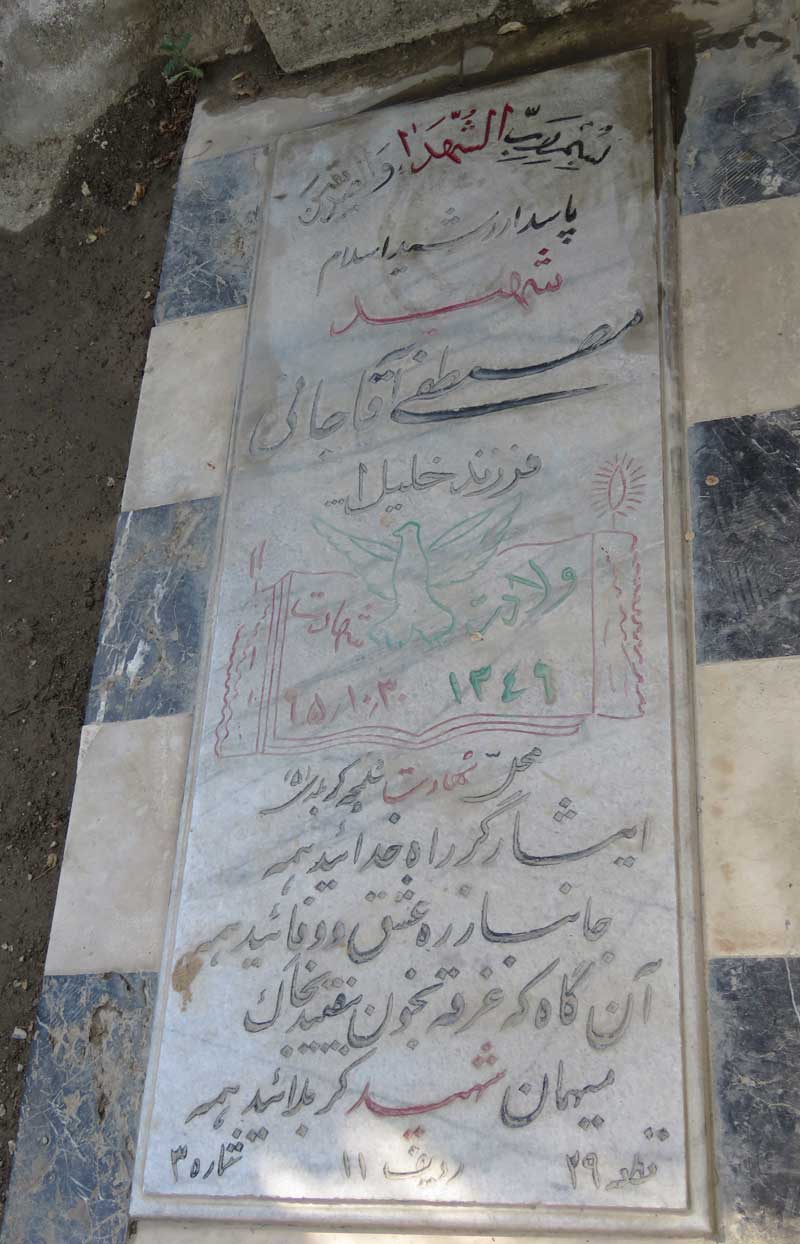 بسم رب الشهداء والصدیقین
پاسدار رشید اسلام
شهید
مصطفی آقاجانی
فرزند خلیل ا...
ولادت شهادت
۱۳۴۹ ۶۵٫۱۰٫۳۰
محل شهادت شلمچه کربلای ۵
ایثارگر راه خدائید همه
جانباز ره عشق و وفائید همه
آن گاه که غرقه بخون میفتید بخاک
میهمان شهید کربلائید همه
قطعه ۲۹ ردیف ۱۱ شماره ۳